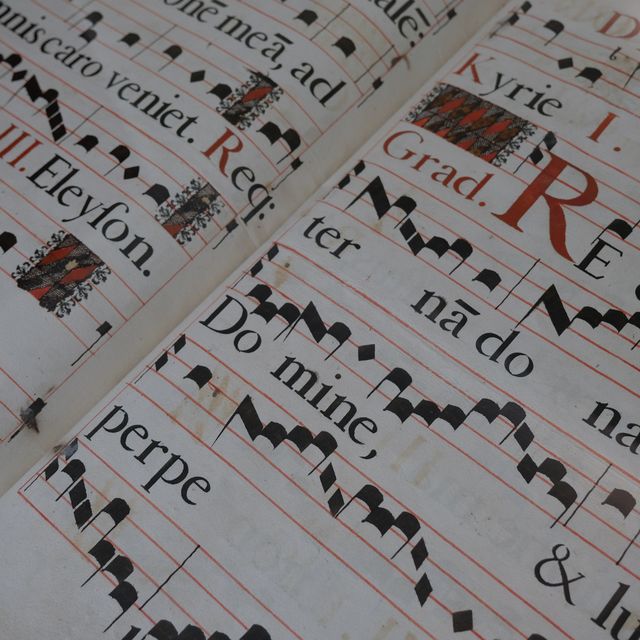 meā, ad
caro veniet. Req:
III. Eleyſon.
Kyrie I.
Grad. RE
ter nā do na
Do mine,
perpe & lu